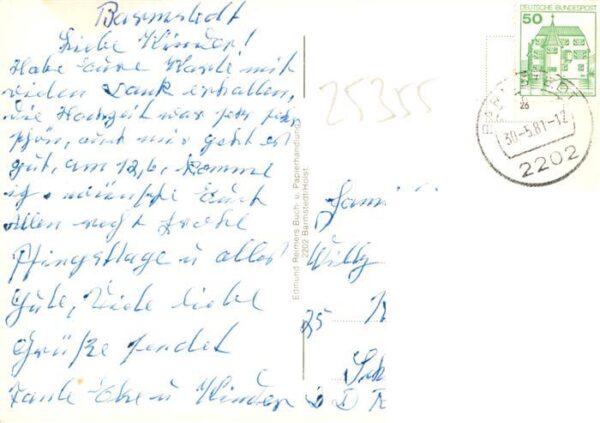 Barmstedt
Liebe Kinder!
Habe Eure Karte mit
vielen Dank erhalten,
die Hochzeit war sehr
schön, auch mir geht es
gut, am 12.6. komme
ich wünsche Euch
Allen recht frohe
Pfingsttage u alles
Gute, Viele liebe
Grüße sendet
Tante Else u Kinder
Edmund Reimers Buch- u. Papierhandlung
2202 Barmstedt/Holst.
25355
DEUTSCHE BUNDESPOST
50
30.-5.81-12
2202
26
Fam
Willy
25